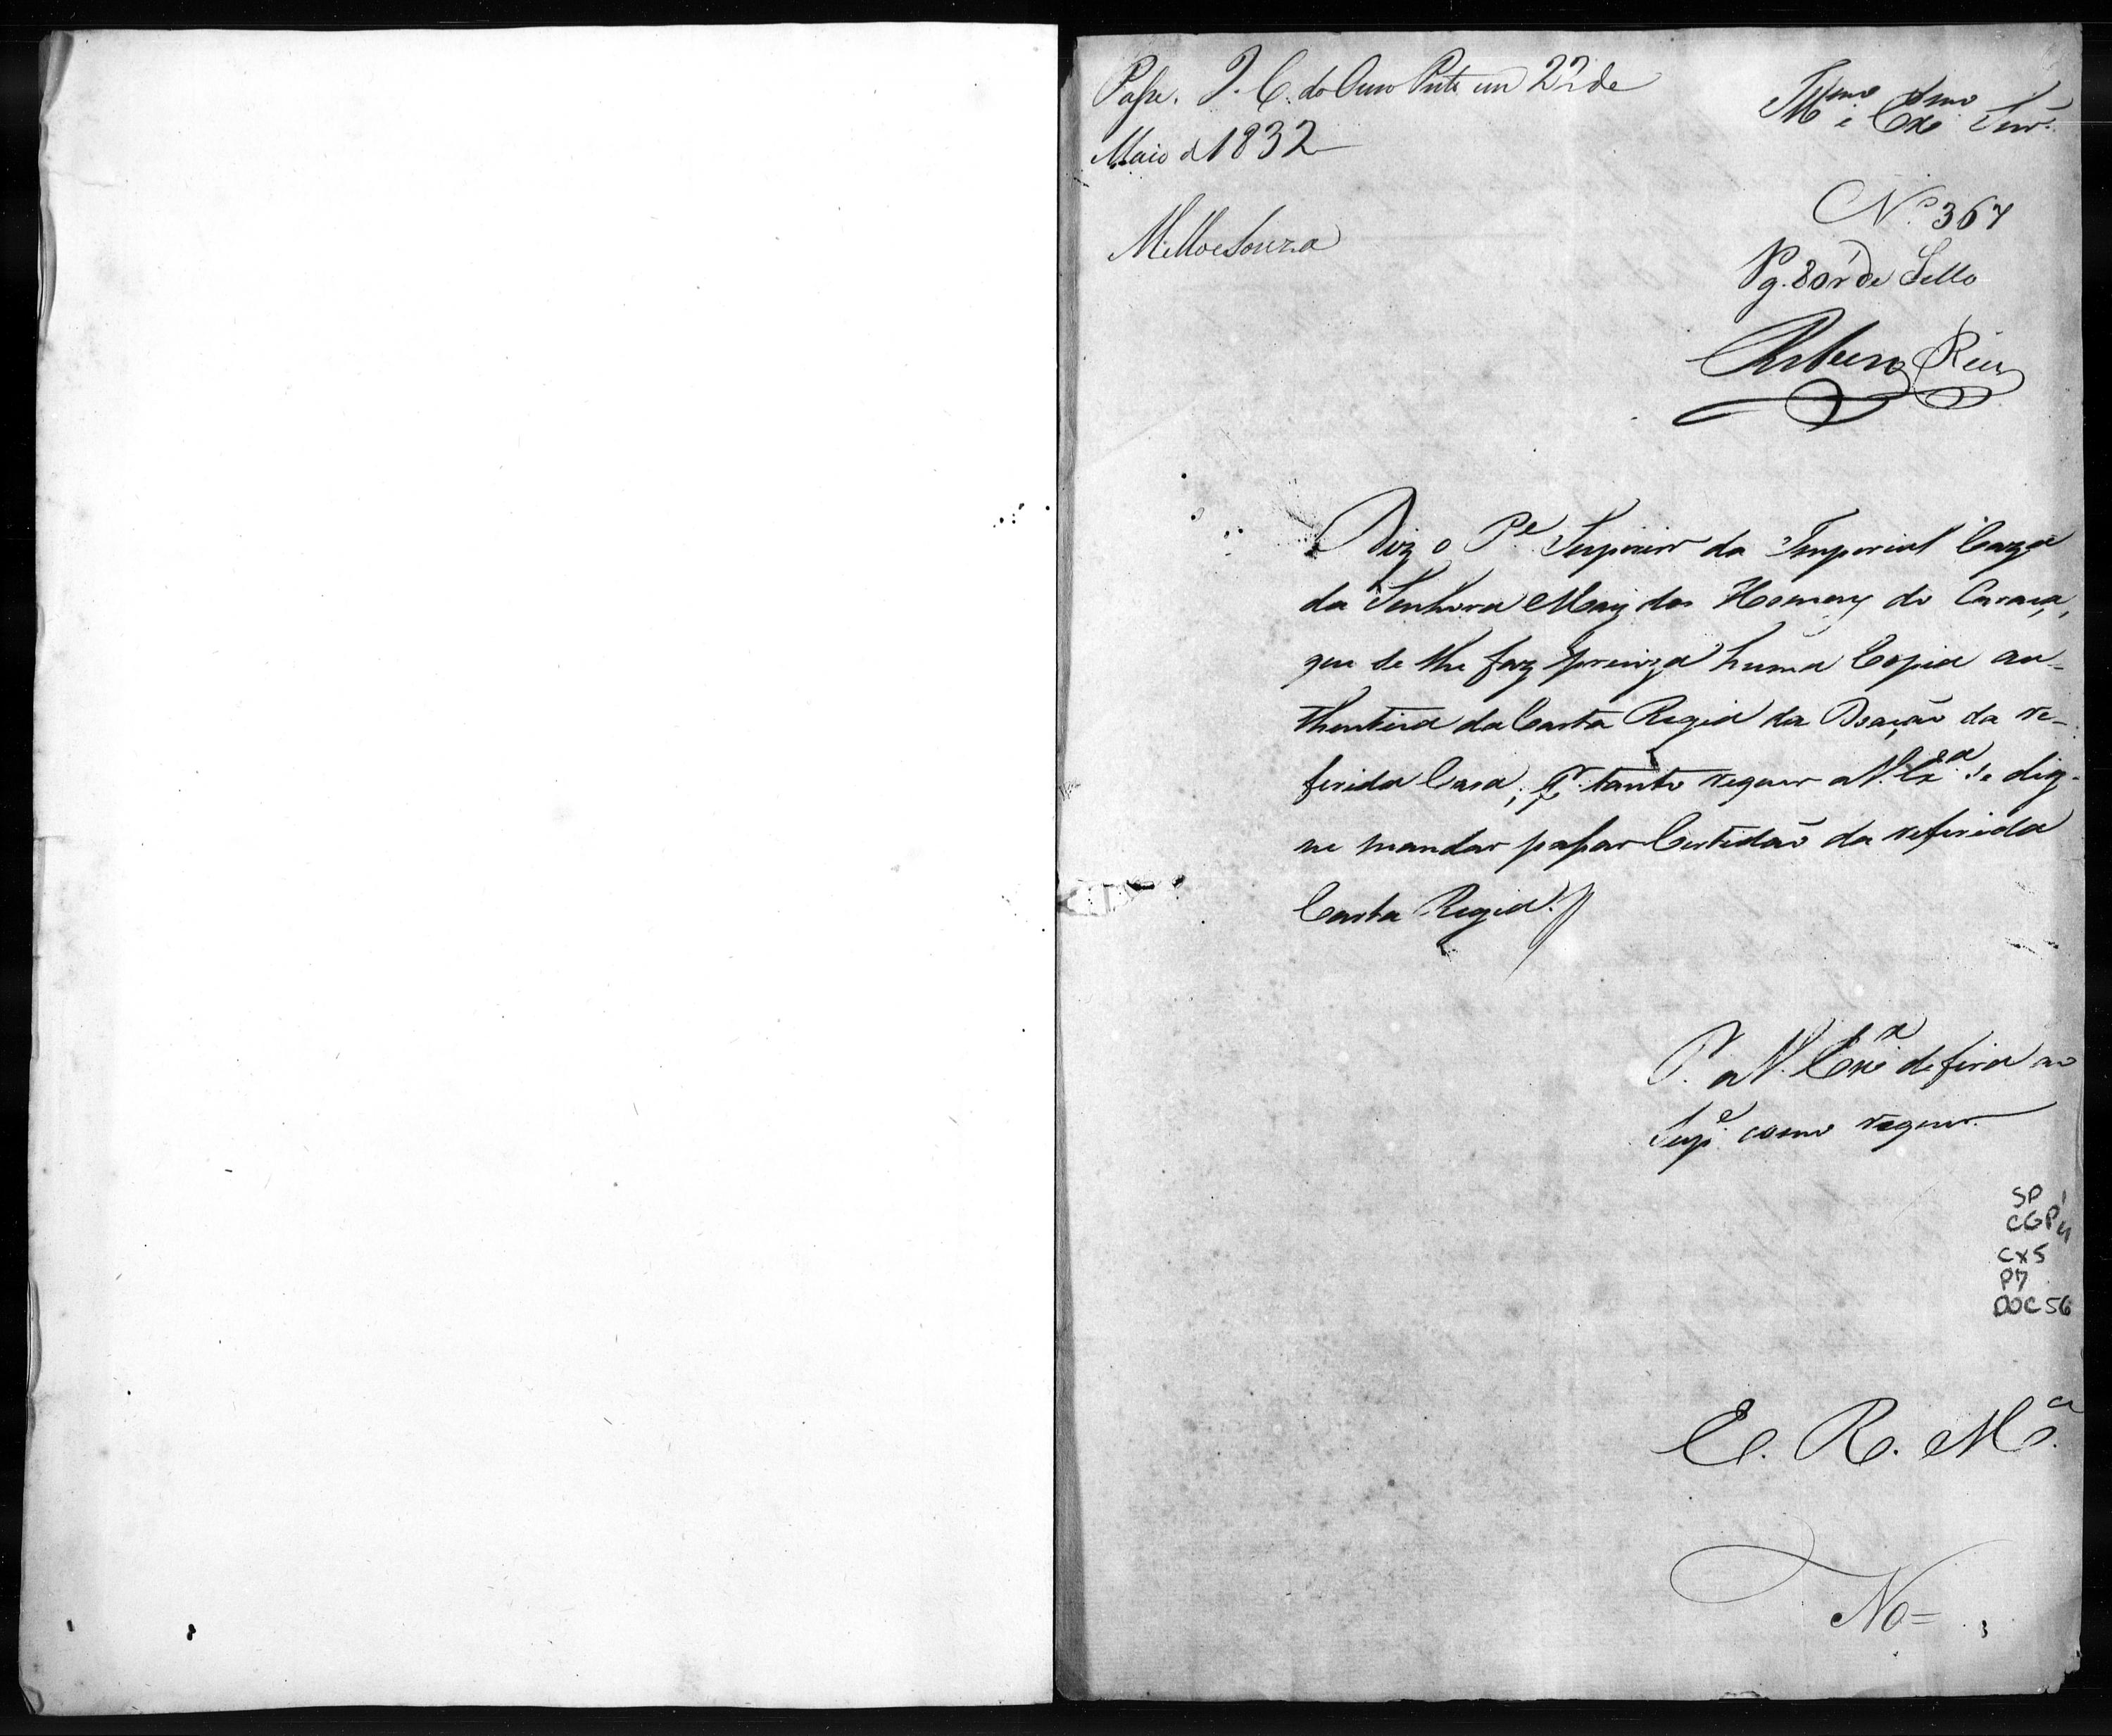 Passe. I. C. do Ouro Preto em 22 de
Maio d 1832
Mello e Souza
Illmo e Exmo Senr.
N.º 367
Pg. 80 r de Sello
Ribeiro Reis
Diz o Pe. Superior da Imperial Caza
da Senhora Mãy dos Homens do Caraça,
que se lhe faz preciza huma Copia au-
thentica da Carta Regia da Doação da re-
ferida Casa; Pr. tanto requer a V. Exa. se dig-
ne mandar passar Certidão da referida
Carta Regia.
P. a V. Exa. defira ao
Supe. como requer.
SP
CGP 1
CX5
P7
DOC 56
E. R. Mca.
No=